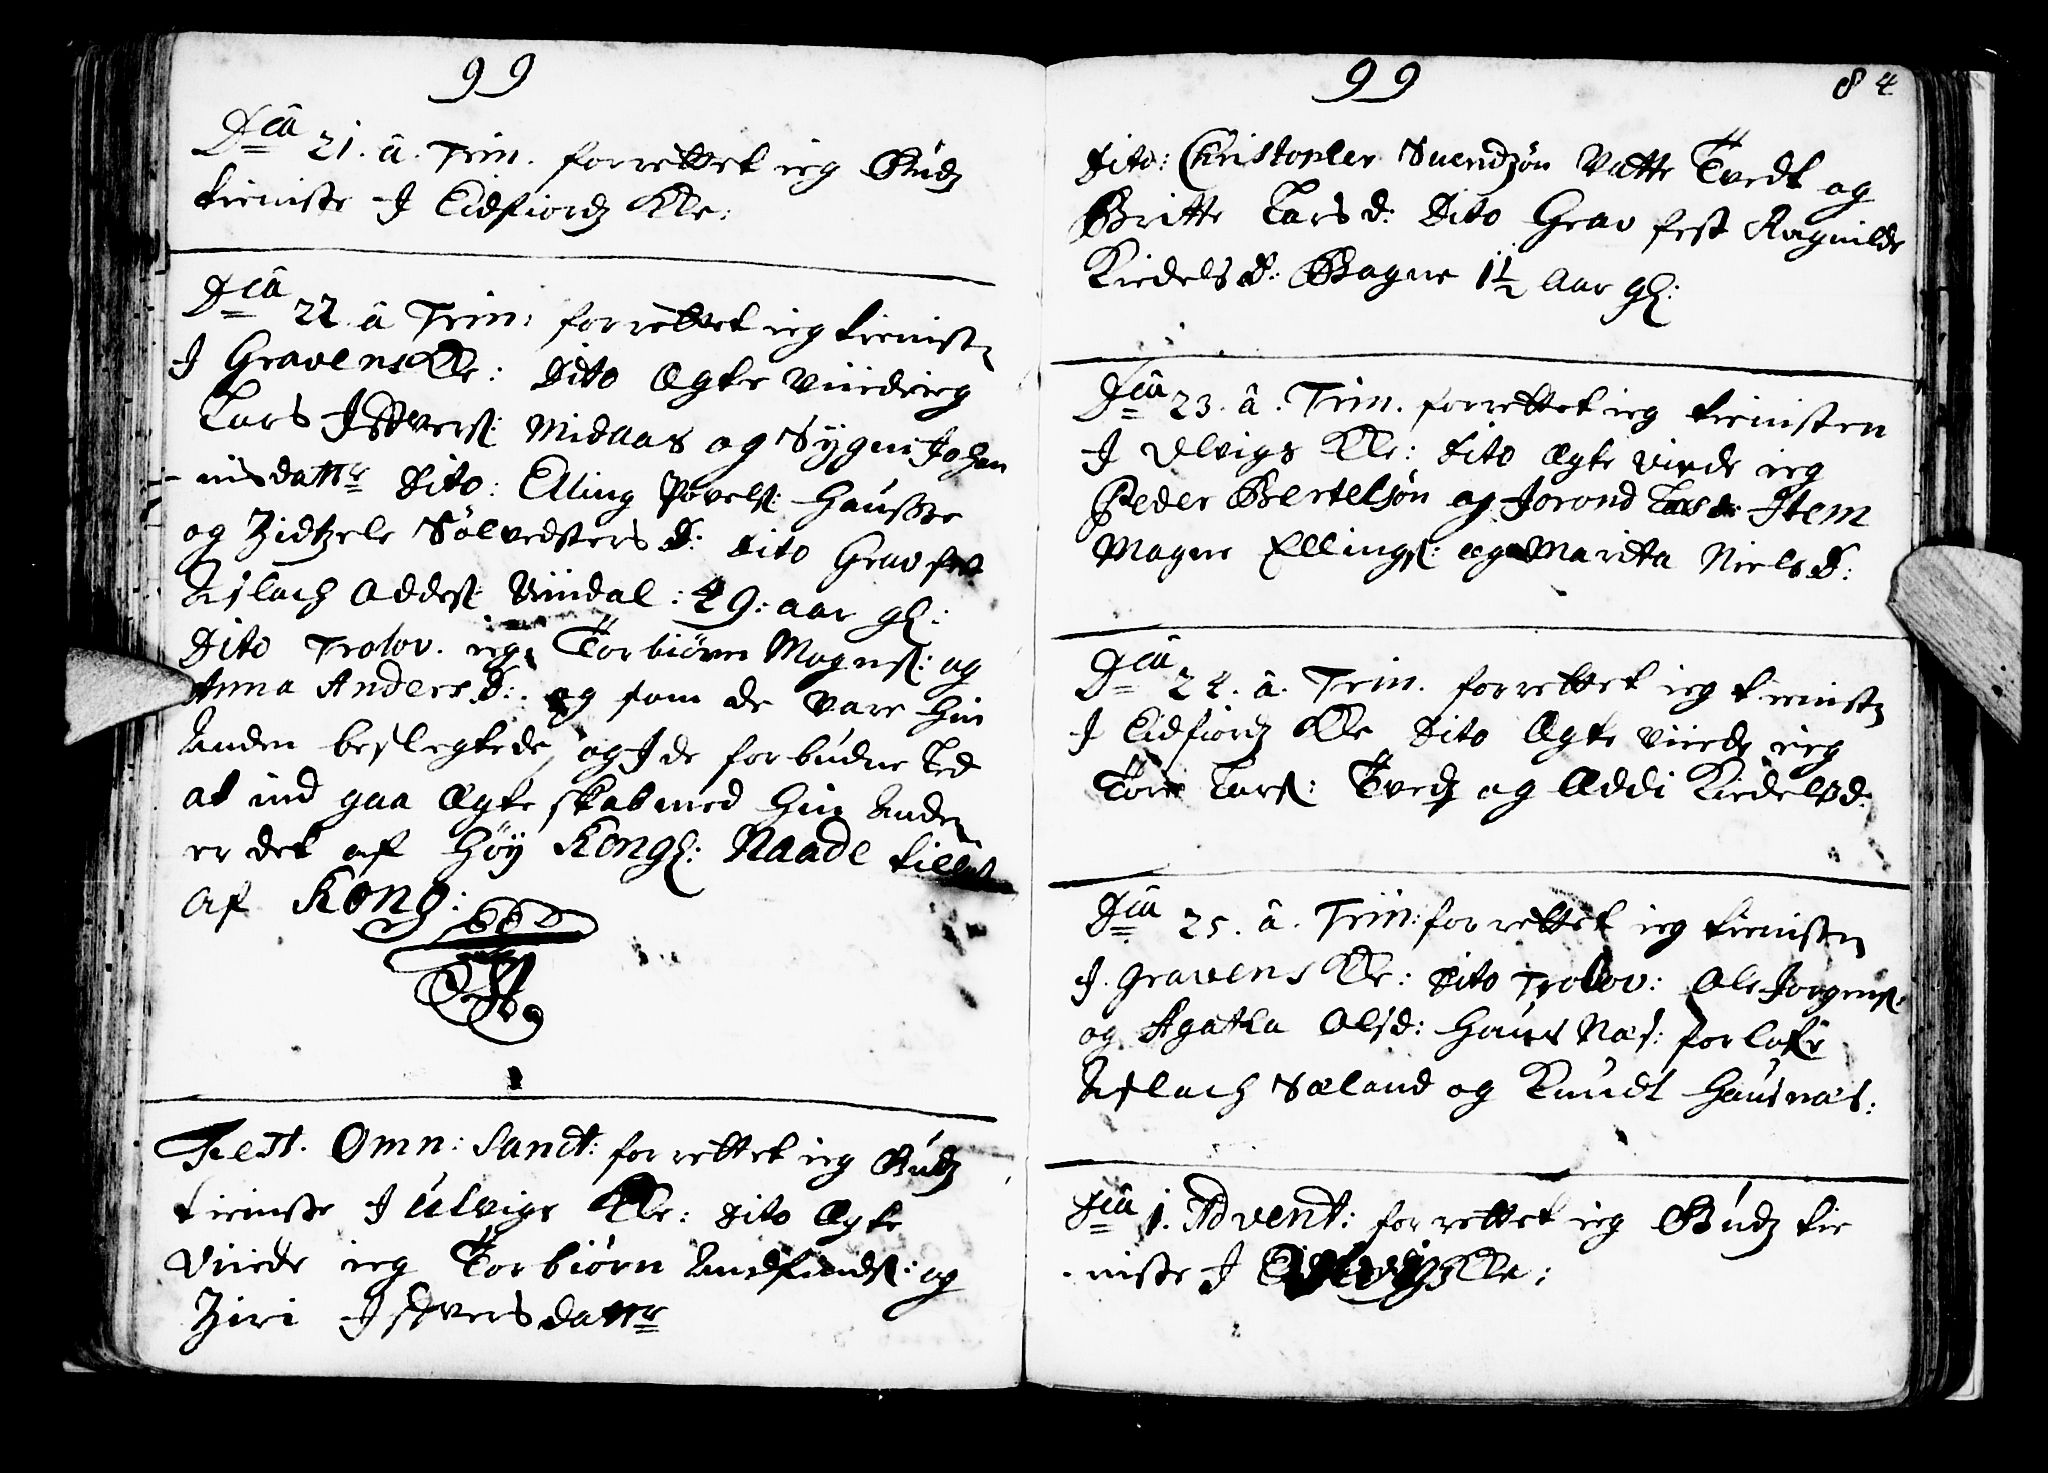 99
Dca 21. â. Trin. forrettet ieg Gudz
tieniste J Eidfiordz Kle:
Dca 22. â Trin: forrettet ieg tienisten
J Gravens Kle: Dito Ægte Viiede ieg
Lars Jffvers: Midaas og Sygni Johan
nisdattr Dito: Elling Povels: Hausse
og Zidtzele Sølvedsters D: Dito Grav fest
Aslach Oddes: Viindal: 49: aar gl:
Dito Trolov. ieg Torbiörn Magns: og
Anna Anders D: og som de vare hin
Anden beslegtede, og J de forbudne Led
at ind gaa Ægte skab med hin Anden
er det af Høy Kongl: Naade tillat
af Kong:
Fest. Omn: Sanct: forrettet ieg Gudz
tieniste J Ulvigs Kle: Dito Ægte
Viiede ieg Torbiörn Andfinds: og
Ziri Jffversdattr
99
84
Dito: Christopher Suendzøn Vatte Tvedt og
Britte Lars d: Dito Grav fest Ragnilde
Kiedels D: Bagne 1 1/2 Aar gl:
Dca 23. â. Trin. forrettet ieg tienisten
J Ulvigs Kle: Dito Ægte viede ieg
Peder Bertelsøn og Jorond Lars d: Item
Magne Ellings: og Marita Niels D:
Dca 24. â. Trin. forrettet ieg tienisten
J Eidfiordz Kle Dito Ægte viiede ieg
Tore Lars: Tvedz og Æddi Kiedelsd:
Dca 25. â. Trin: forrettet ieg tienisten
J. Gravens Kle: Dito Trolov: Ole Jorgens:
og Agatha Olsd: Haus Næs: forlofr
Aslach Sæland og Knudt Hausnæs:
Dca 1. Advent: forrettet ieg Gudz tie
niste J Kle: